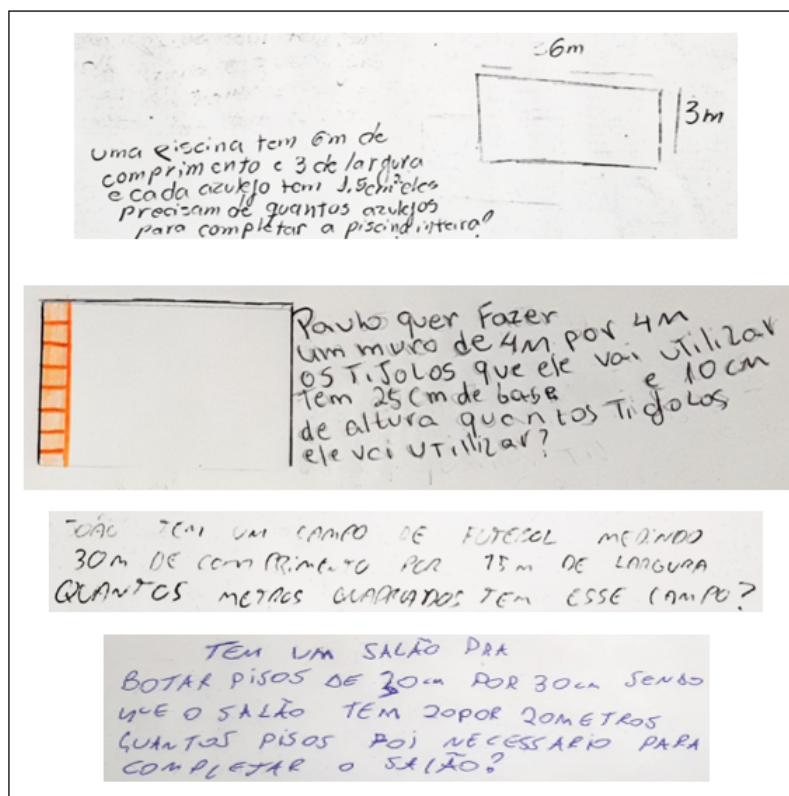 6m
3m
uma piscina tem 6m de
comprimento e 3 de largura
e cada azulejo tem 1.5cm² eles
precisam de quantos azulejos
para completar a piscina inteira?
Paulo quer Fazer
um muro de 4M por 4M
os TiJolos que ele vai uTilizar
Tem 25cm de base e 10cm
de altura quantos Tigolos
ele vai uTillizar?
JOÃO TEM UM CAMPO DE FUTEBOL MEDINDO
30m DE COMPRIMENTO POR 15m DE LARGURA
QUANTOS METROS QUADRADOS TEM ESSE CAMPO?
TEM UM SALÃO PRA
BOTAR PISOS DE 30cm POR 30cm SENDO
QUE O SALÃO TEM 20 POR 20 METROS
QUANTOS PISOS FOI NECESSARIO PARA
COMPLETAR O SALÃO?